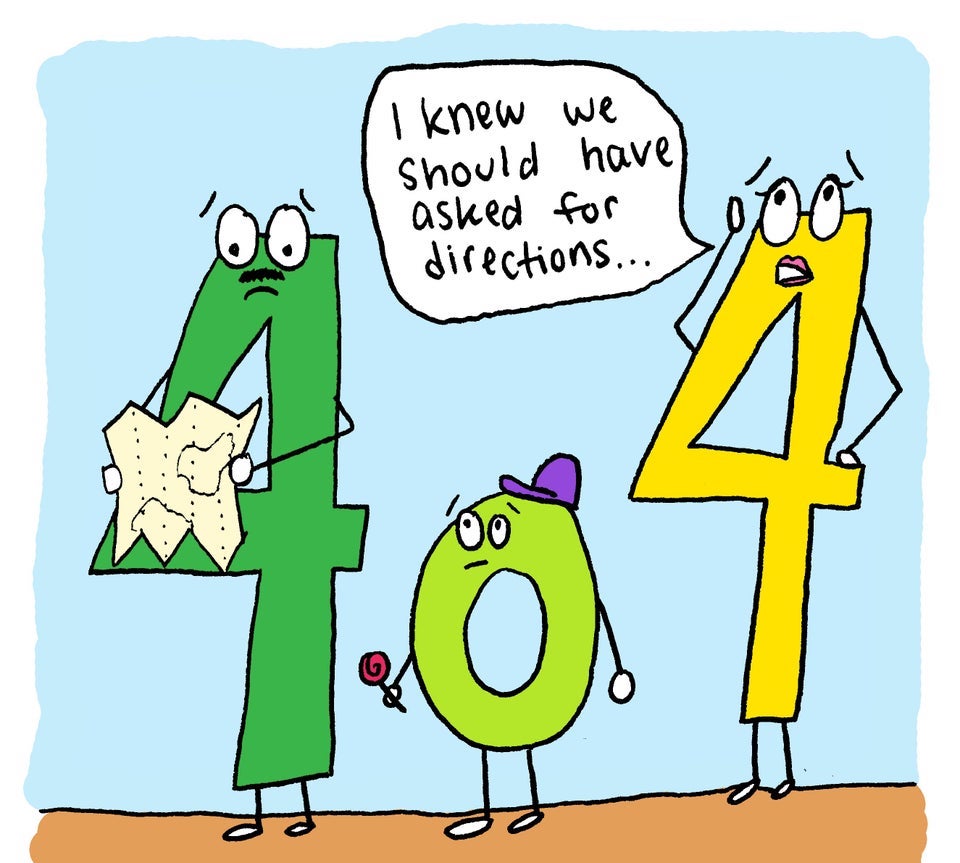 I knew we
should have
asked for
directions...
4 0 4